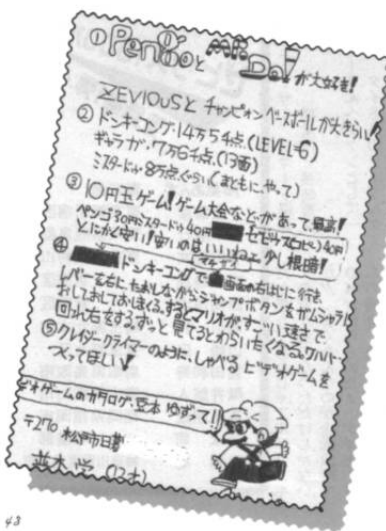 ① Pengoと Mr. Do! が大好き!
ZEVIOUSと チャンピオンベースボールが大きらい!
② ドンキーコング・14万5千点、(LEVEL=6)
ギャラガ・7万6千点、(13面)
ミスタードゥ・8万点ぐらい(まともに、やって)
③ 10円玉ゲーム!ゲーム大会などがあって、最高!
ペンゴ30円ミスタードゥ40円 ゼビウス(コピー)40円
とにかく安い!安いのはいいねェ 少し根暗!
マチャイ
④ ドンキーコングで 画面の右はじに行き、
レバーを右に、たおしながらジャンプボタンをガムシャラに
おしておしておしまくる。するとマリオが、すごい速さで
回れ右をする。ずっと見てるとわらいたくなる。
⑤ クレイジークライマーのように、しゃべる ビデオゲームを
つくってほしい!
ビデオゲームのカタログ・豆本 ゆずって!!
〒270 松戸市日暮
並木 学 (12才)
48